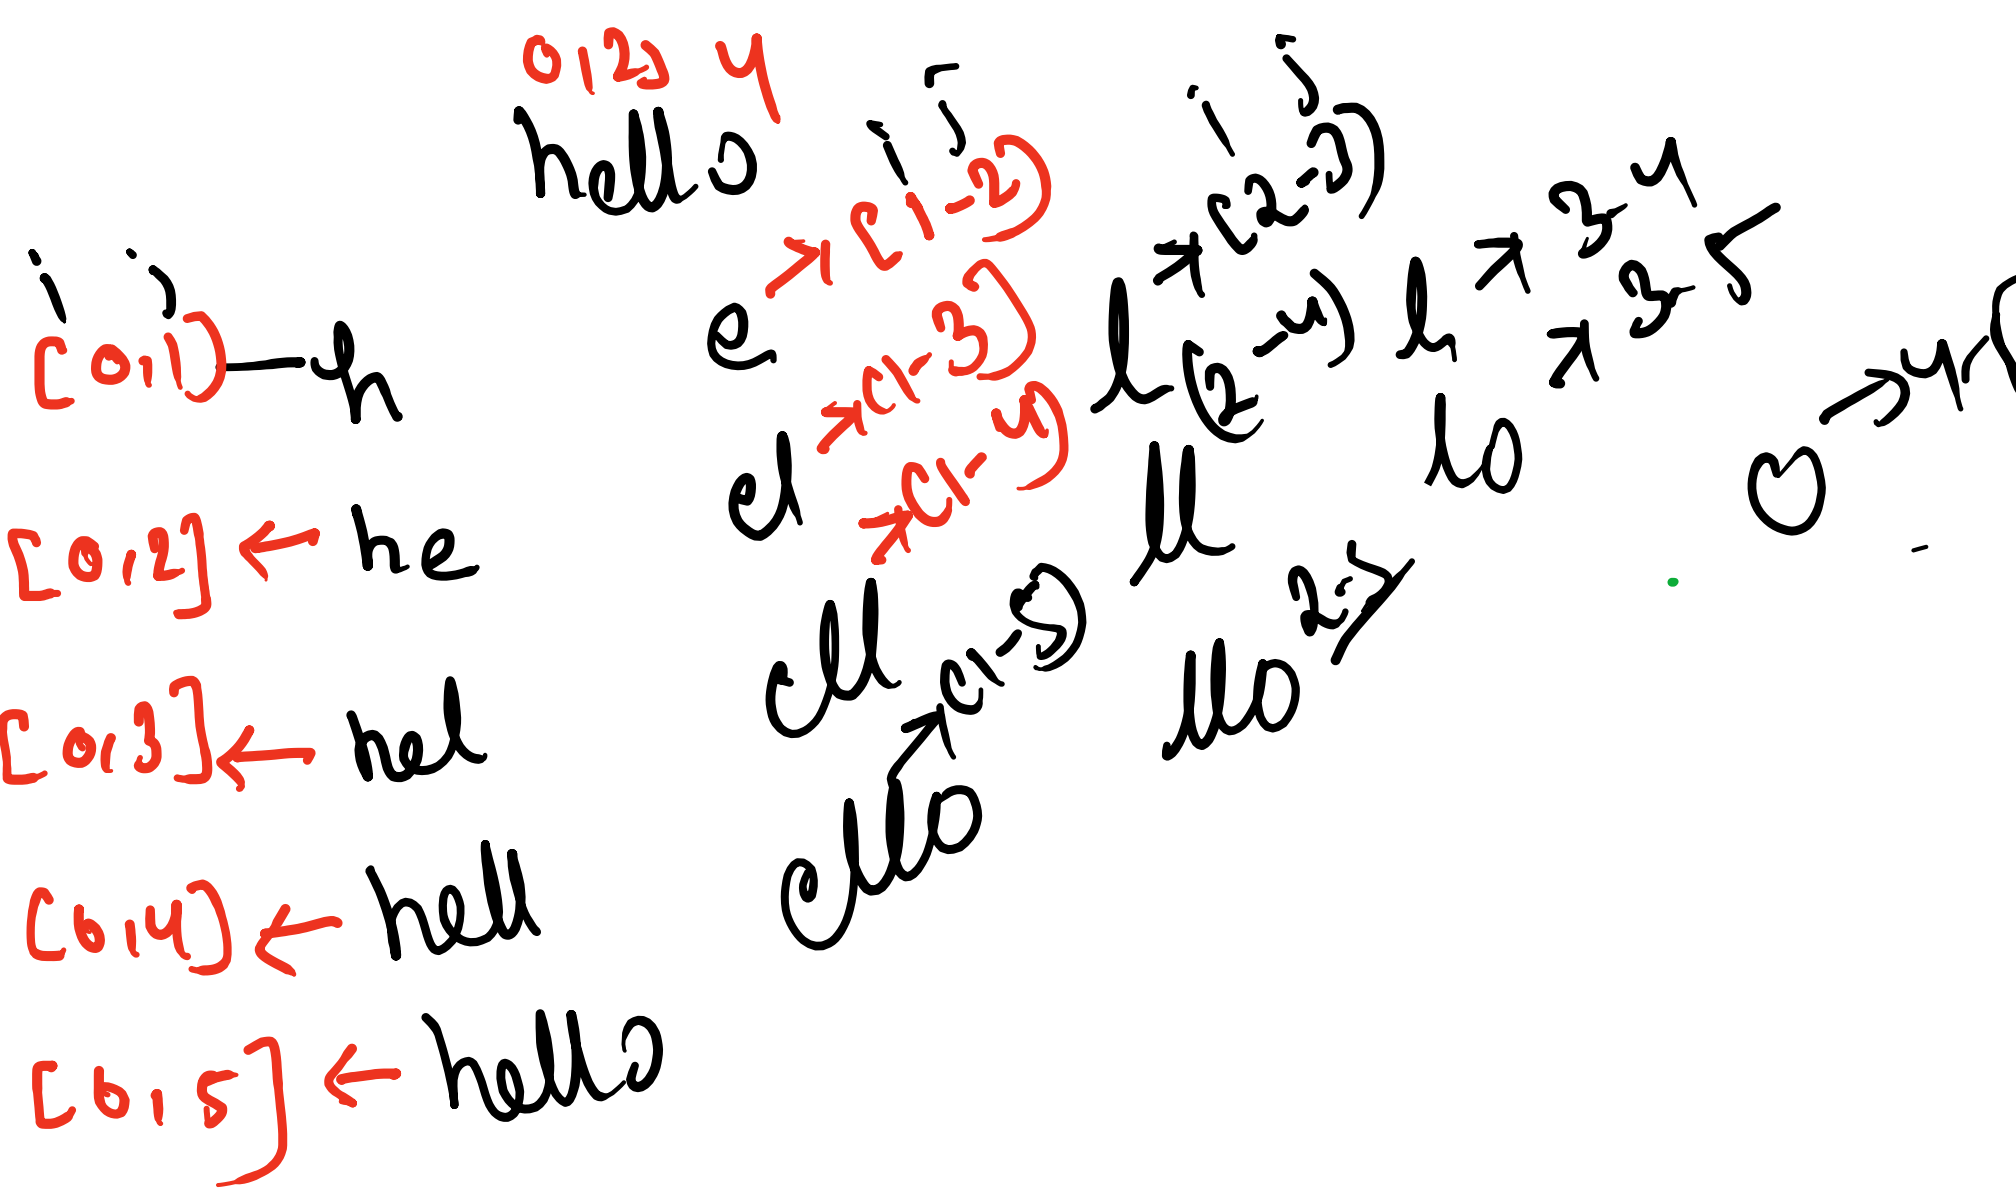 0,1,2,3 4
hello
i j
[0,1) h
[0,2] ← he
[0,3] ← hel
[0,4) ← hell
[0,5] ← hello
i j
e → [1-2)
el → (1-3)
ell → (1-4)
ello → (1-5)
i j
l → [2-3)
ll (2-4)
llo 2-5
l → 3-4
lo → 3-5
o → 4-